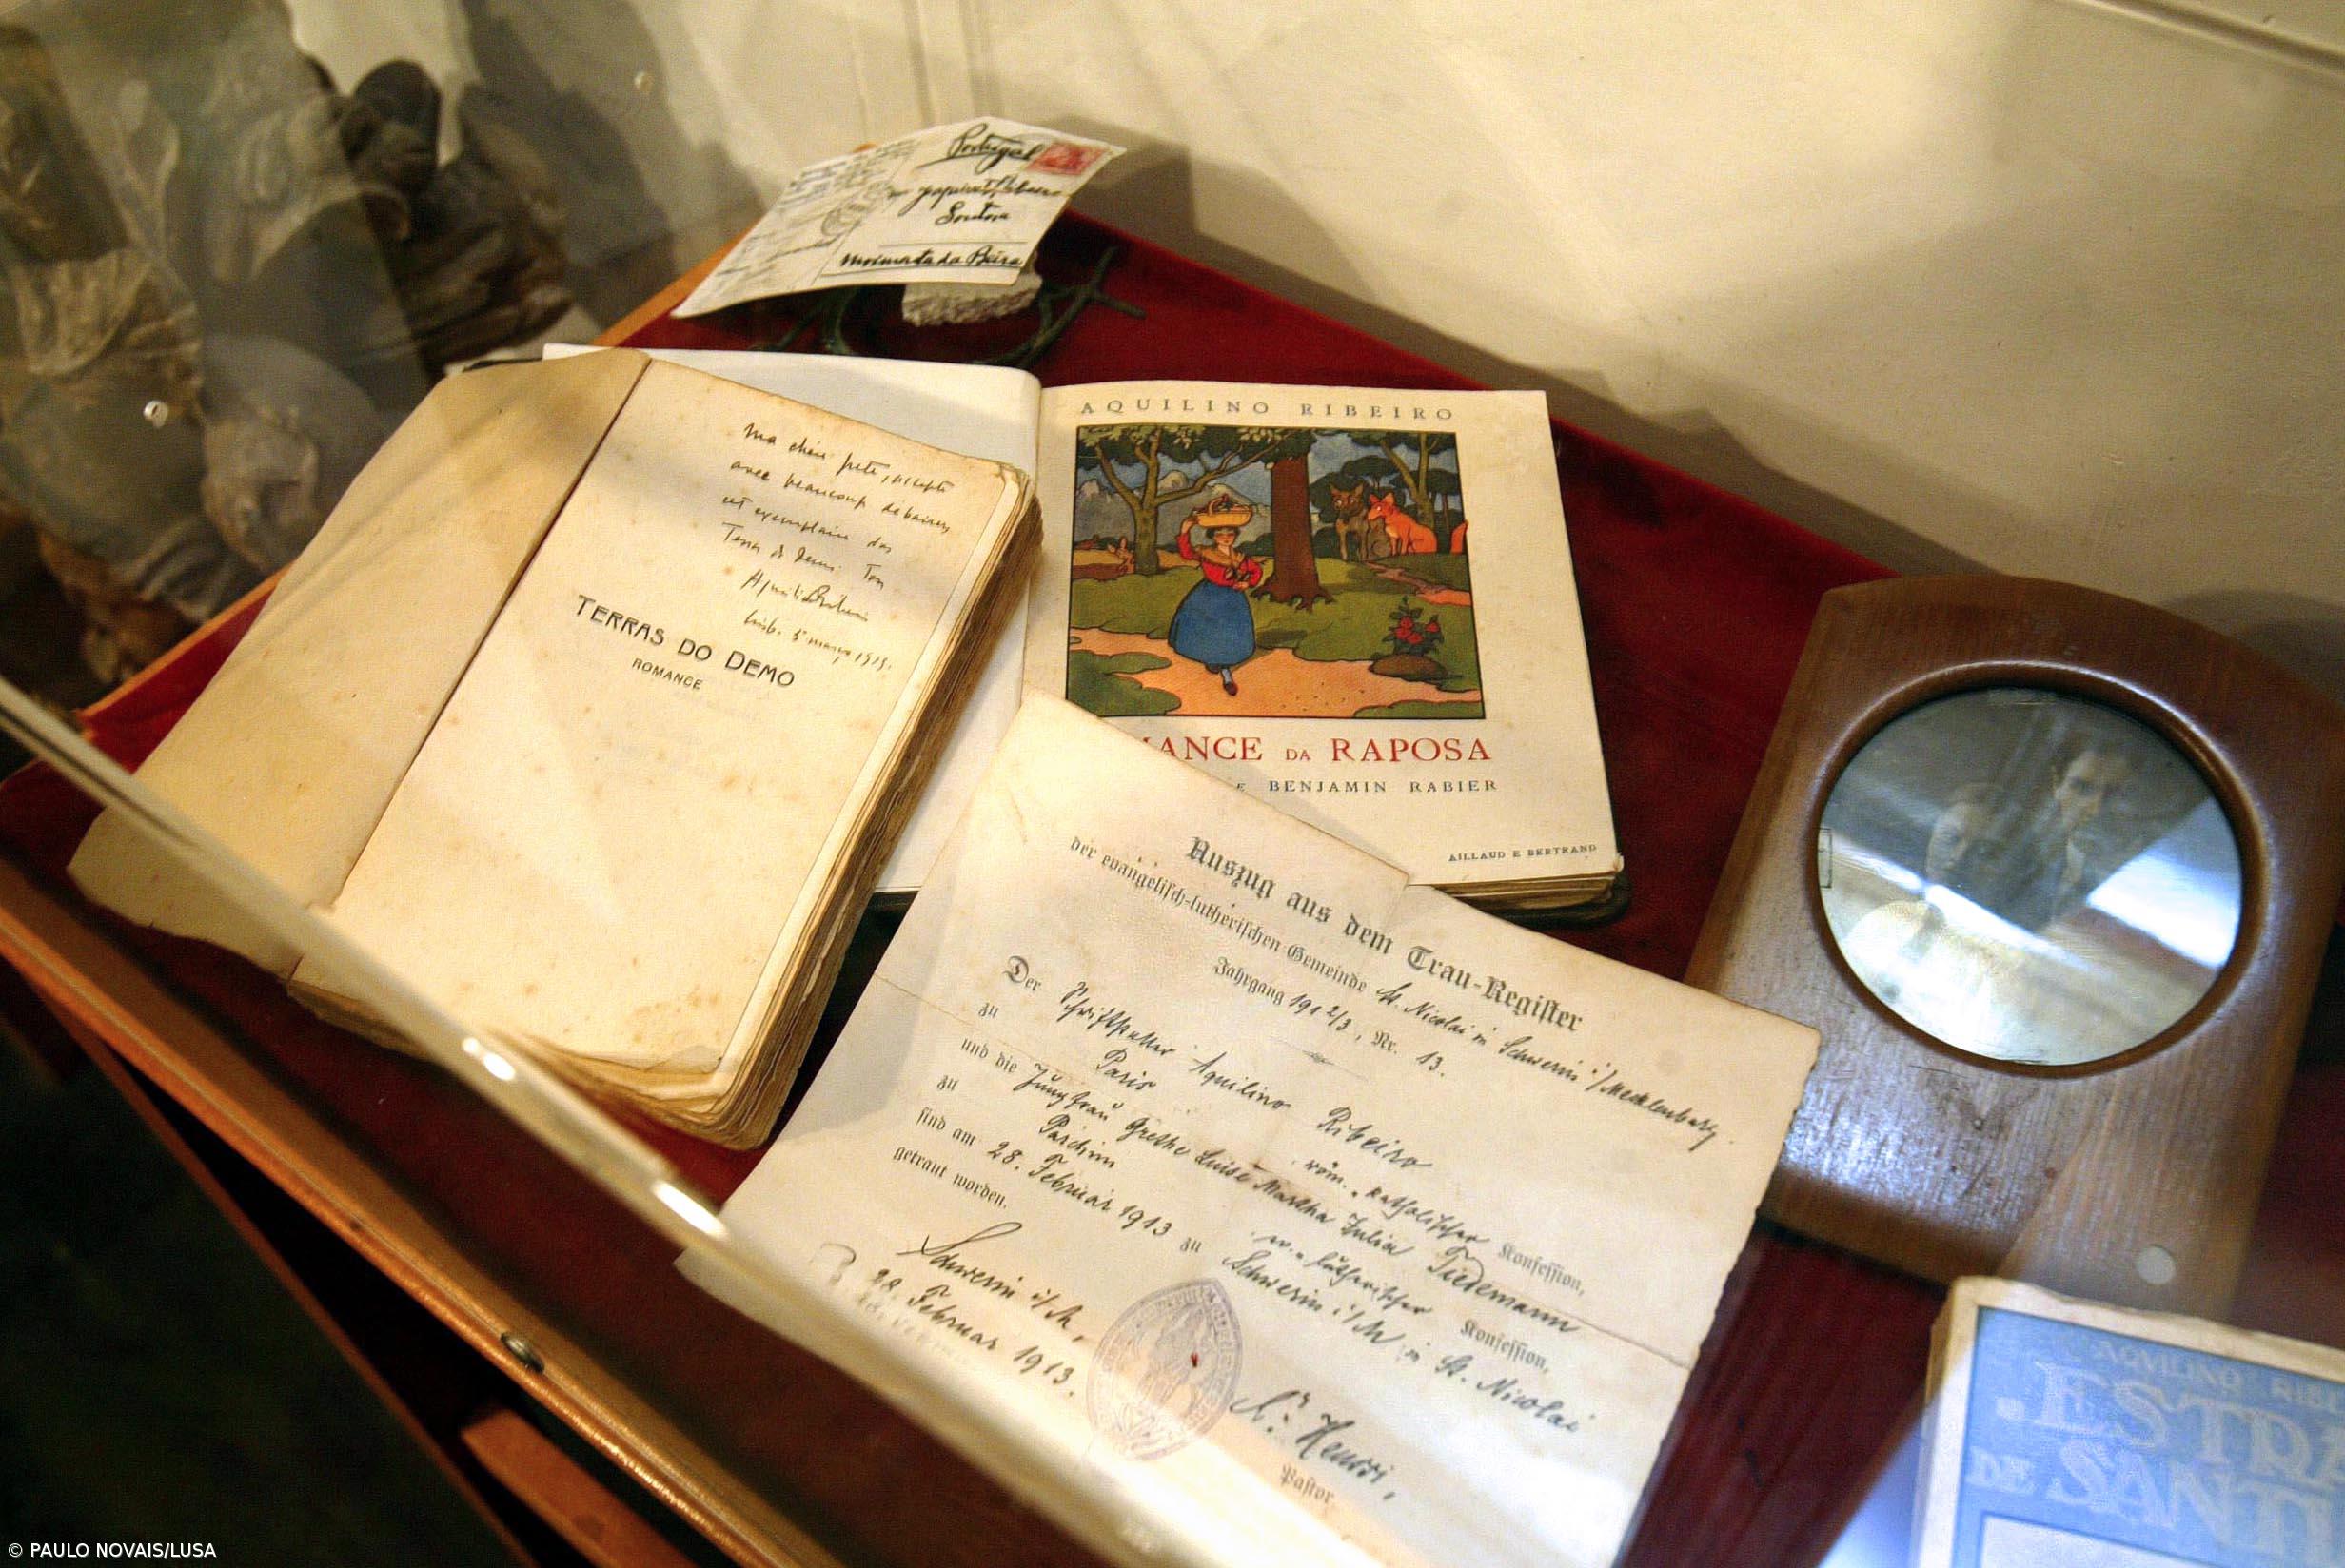 Portugal
Soutosa
Moimenta da Beira
Ma chère
avec beaucoup de baisers
cet exemplaire das
Terras do Demo. Ton
Aquilino Ribeiro
TERRAS DO DEMO
ROMANCE
AQUILINO RIBEIRO
MANCE DA RAPOSA
E BENJAMIN RABIER
AILLAUD E BERTRAND
Auszug aus dem Trau-Register
der evangelisch-lutherischen Gemeinde St. Nicolai in Schwerin i/Mecklenburg.
Jahrgang 1912/3, Nr. 13.
Der Schriftsteller Aquilino Ribeiro
zu Paris röm.-katholischer Konfession,
und die Jungfrau Grethe Luise Martha Julia Tiedemann
zu Parchim ev.-lutherischer Konfession,
sind am 28. Februar 1913 zu Schwerin i/M in St. Nicolai
getraut worden.
Schwerin i/M,
28. Februar 1913.
Pastor
AQUILINO RIBE
ESTRA
DE SANTI
© PAULO NOVAIS/LUSA